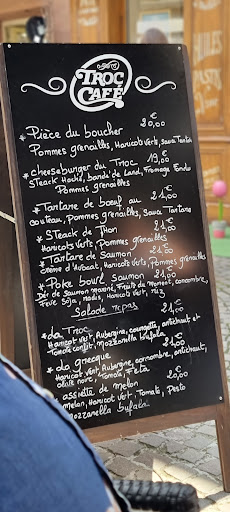 TROC
CAFÉ
21,00
* Pièce du boucher 20,00€
Pommes grenailles, Haricots Verts, Sauce Tartare
* cheeseburger du Troc 19,00€
Steack Haché, bande de Lard, Fromage Fondu
Pommes grenailles
* Tartare de boeuf au 21,00€
couteau, Pommes grenailles, Sauce Tartare
* Steack de Thon 21,00€
Haricots Verts, Pommes grenailles
* Tartare de Saumon 21,00
Crème d'Avocat, Haricots Verts, Pommes grenailles
* Poke bowl saumon 21,00€
Dés de Saumon Mariné, Fruits du Moment, concombre,
Fève Soja, radis, Haricot Vert, riz
Salade repas
* da Troc 21,00€
Haricot vert, Aubergine, courgette, artichaut et
Tomate confit, Mozzarella bufala
* La grecque 21,00€
Haricot vert Aubergine, concombre, artichaut,
olive noire, Tomate, Feta
* assiette de melon 20,00€
melon, Haricot vert, Tomate, Pesto
Mozzarella bufala